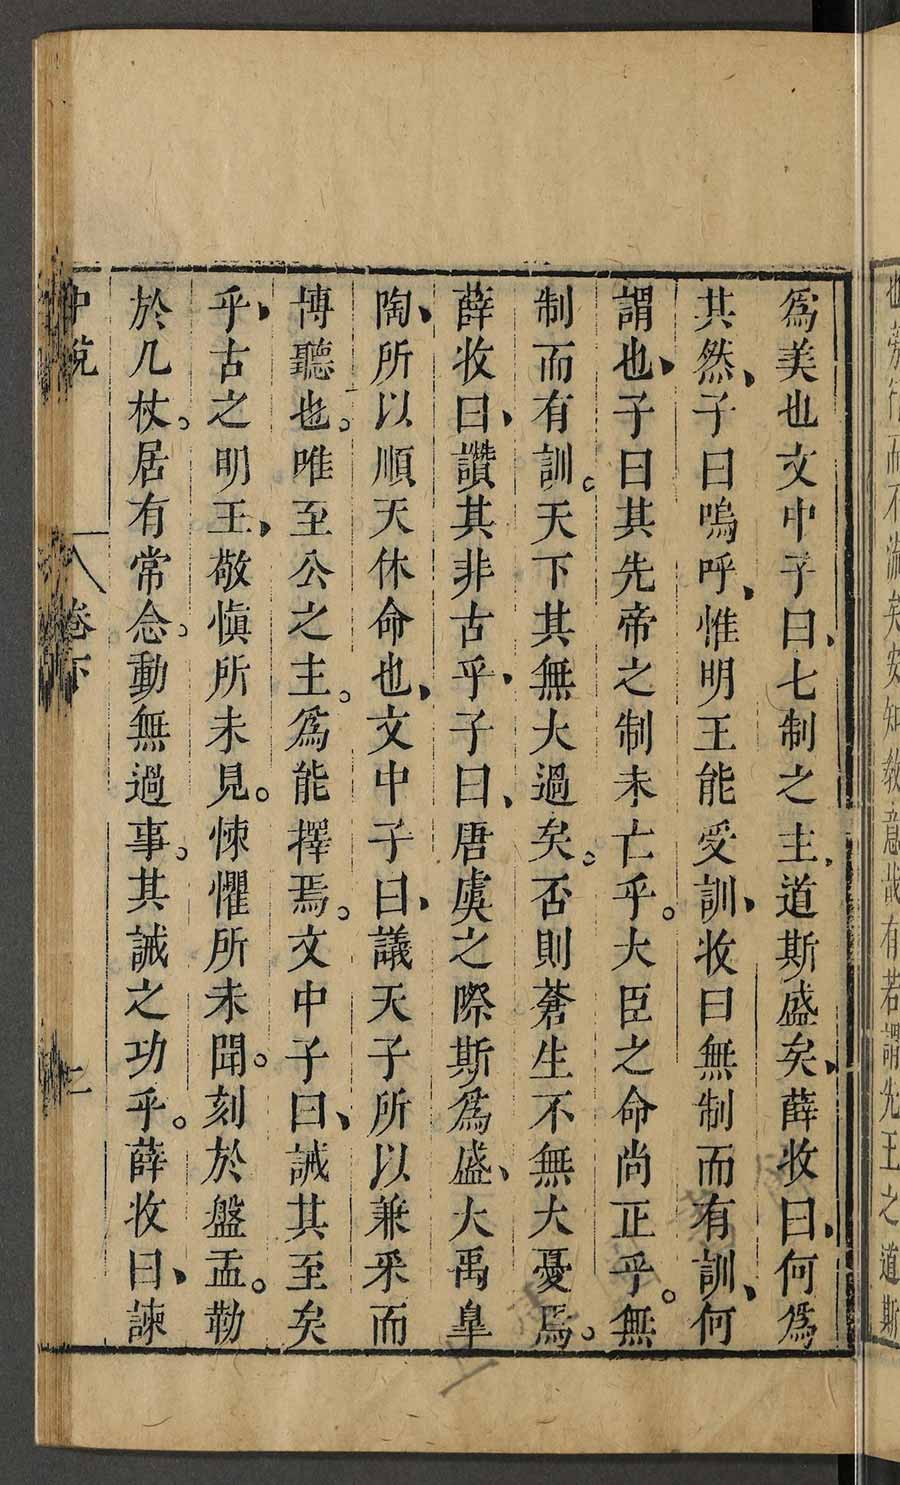 也旁行而不流矣安知教意哉有若謂先王之道斯
爲美也文中子曰、七制之主、道斯盛矣、薛收曰、何爲
其然、子曰嗚呼、惟明王能受訓、收曰無制而有訓、何
謂也、子曰其先帝之制未亡乎。大臣之命尚正乎。無
制而有訓。天下其無大過矣。否則蒼生不無大憂焉。
薛收曰、讚其非古乎、子曰、唐虞之際斯爲盛、大禹臯
陶、所以順天休命也、文中子曰、議天子所以兼采而
博聽也。唯至公之主。爲能擇焉。文中子曰、誡其至矣
乎、古之明王、敬愼所未見。悚懼所未聞。刻於盤盂。勒
於几杖。居有常念。動無過事。其誡之功乎。薛收曰、諫
中說
卷下
二